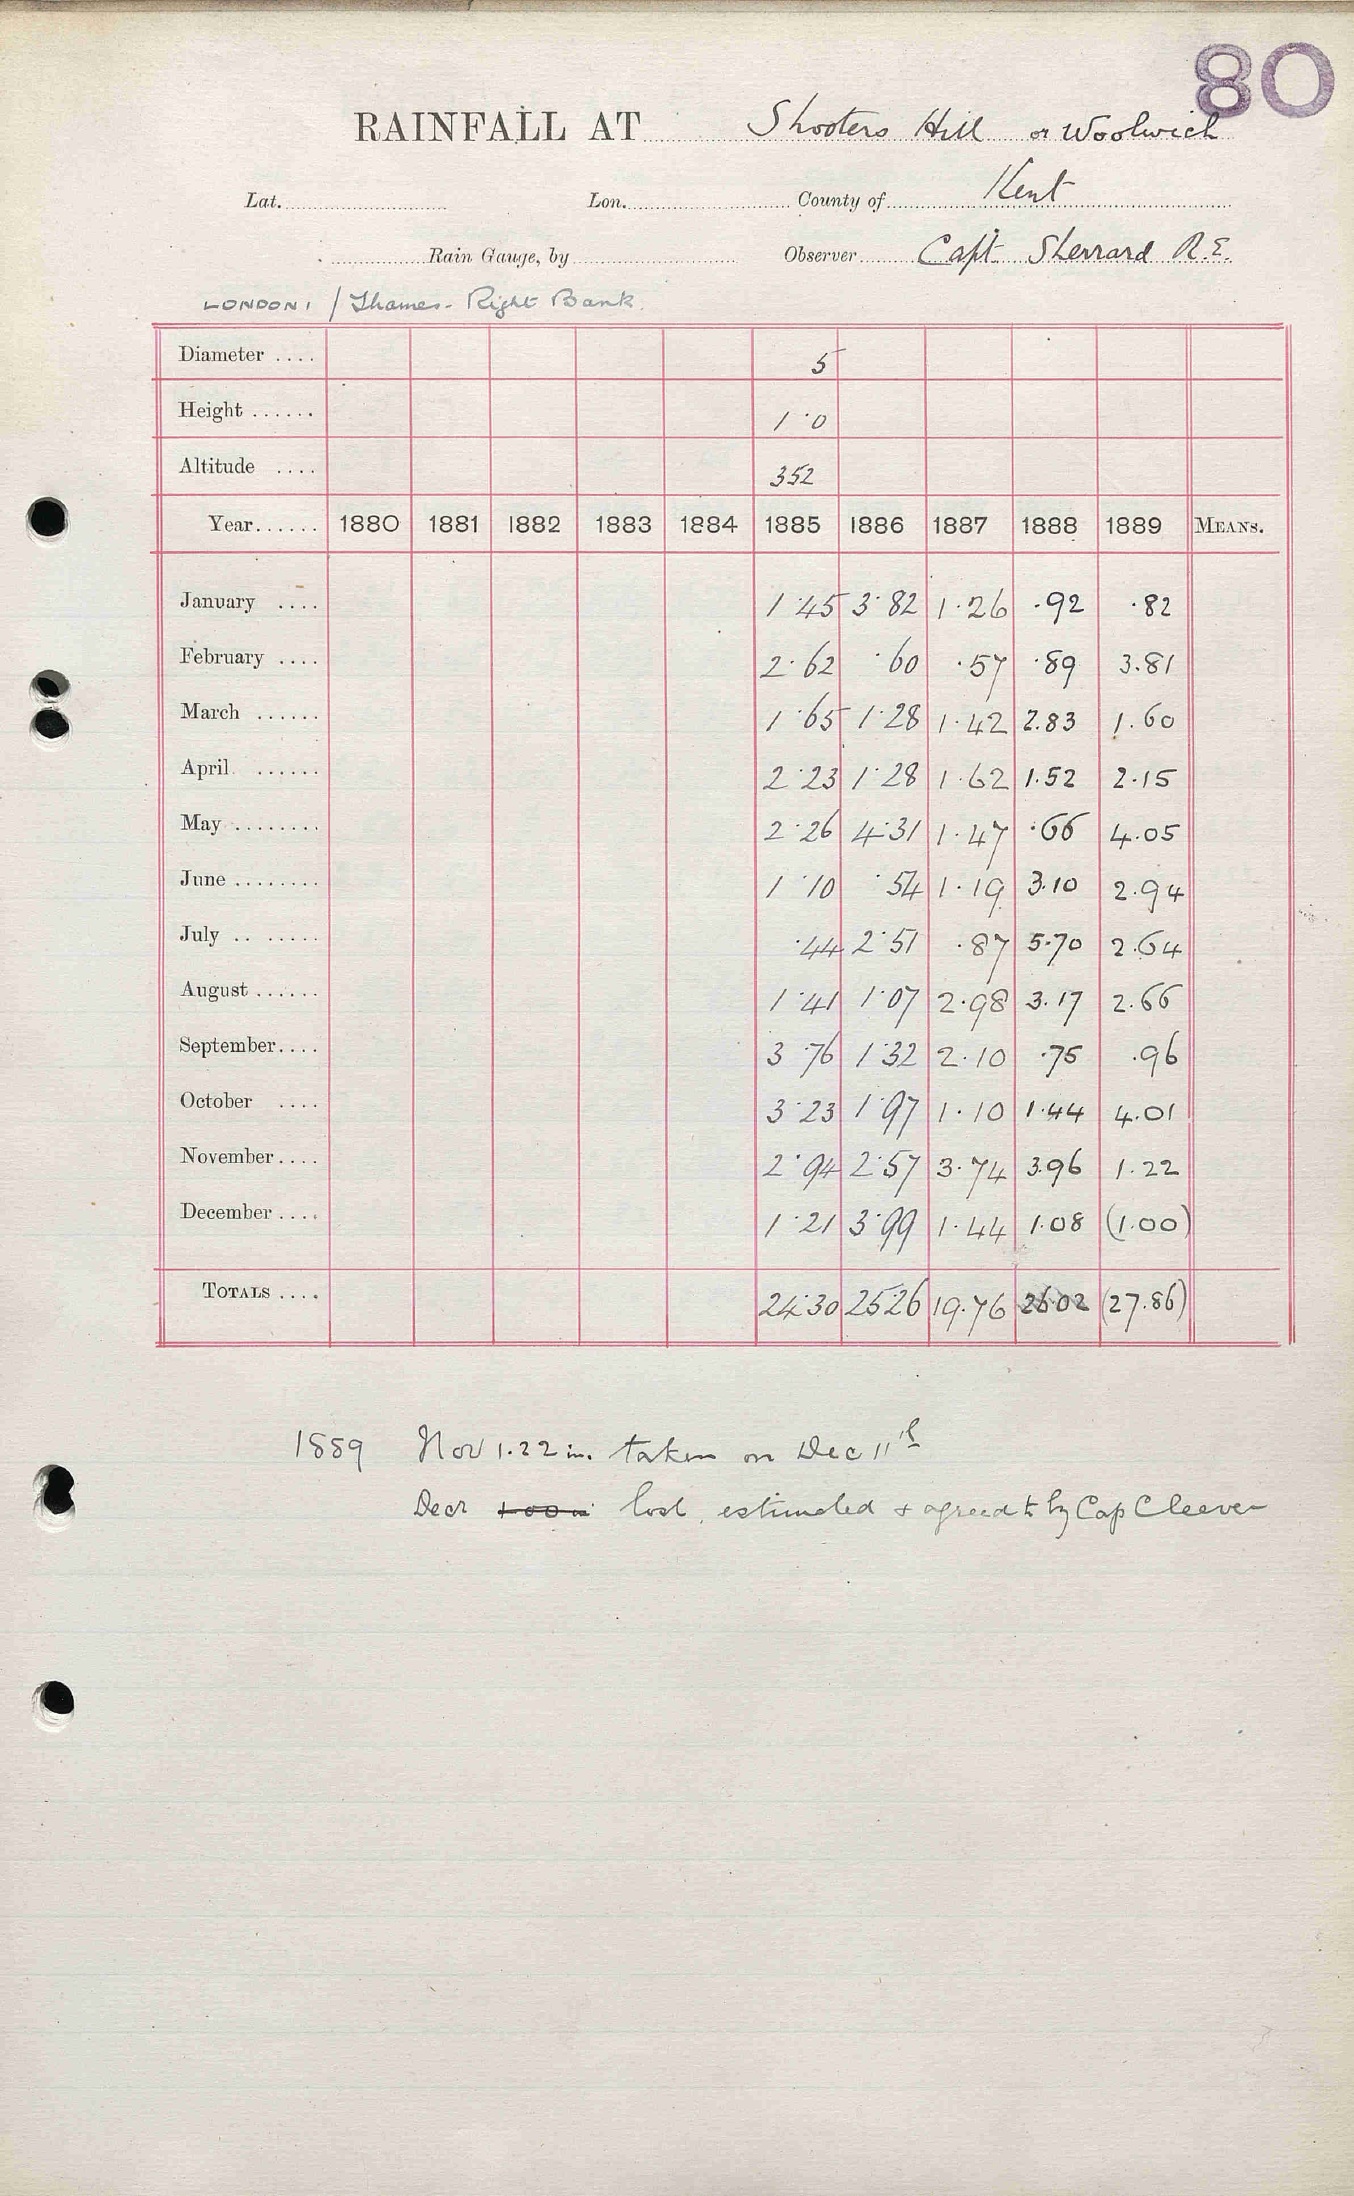 80
RAINFALL AT Shooters Hill or Woolwich
Lat. Lon. County of Kent
Rain Gauge, by Observer Capt. Sherrard R.E.
LONDON, / Thames - Right Bank.
Diameter .... 5
Height ...... 1·0
Altitude .... 352
Year...... 1880 1881 1882 1883 1884 1885 1886 1887 1888 1889 MEANS.
January .... 1·45 3·82 1·26 ·92 ·82
February .... 2·62 ·60 ·57 ·89 3.81
March ...... 1·65 1·28 1·42 2.83 1.60
April ...... 2·23 1·28 1·62 1.52 2·15
May ........ 2·26 4·31 1·47 ·66 4.05
June ........ 1·10 ·54 1·19 3.10 2.94
July .. ..... ·44 2·51 ·87 5·70 2.64
August ...... 1·41 1·07 2·98 3.17 2.66
September.... 3·76 1·32 2·10 ·75 .96
October .... 3·23 1·97 1·10 1·44 4.01
November.... 2·94 2·57 3·74 3.96 1.22
December .... 1·21 3·99 1·44 1.08 (1.00)
TOTALS .... 24·30 25·26 19·76 26.02 (27.86)
1889 Nov 1.22 in. taken on Dec 11th
Decr 1.00 in lost, estimated & agreed to by Cap Cleever